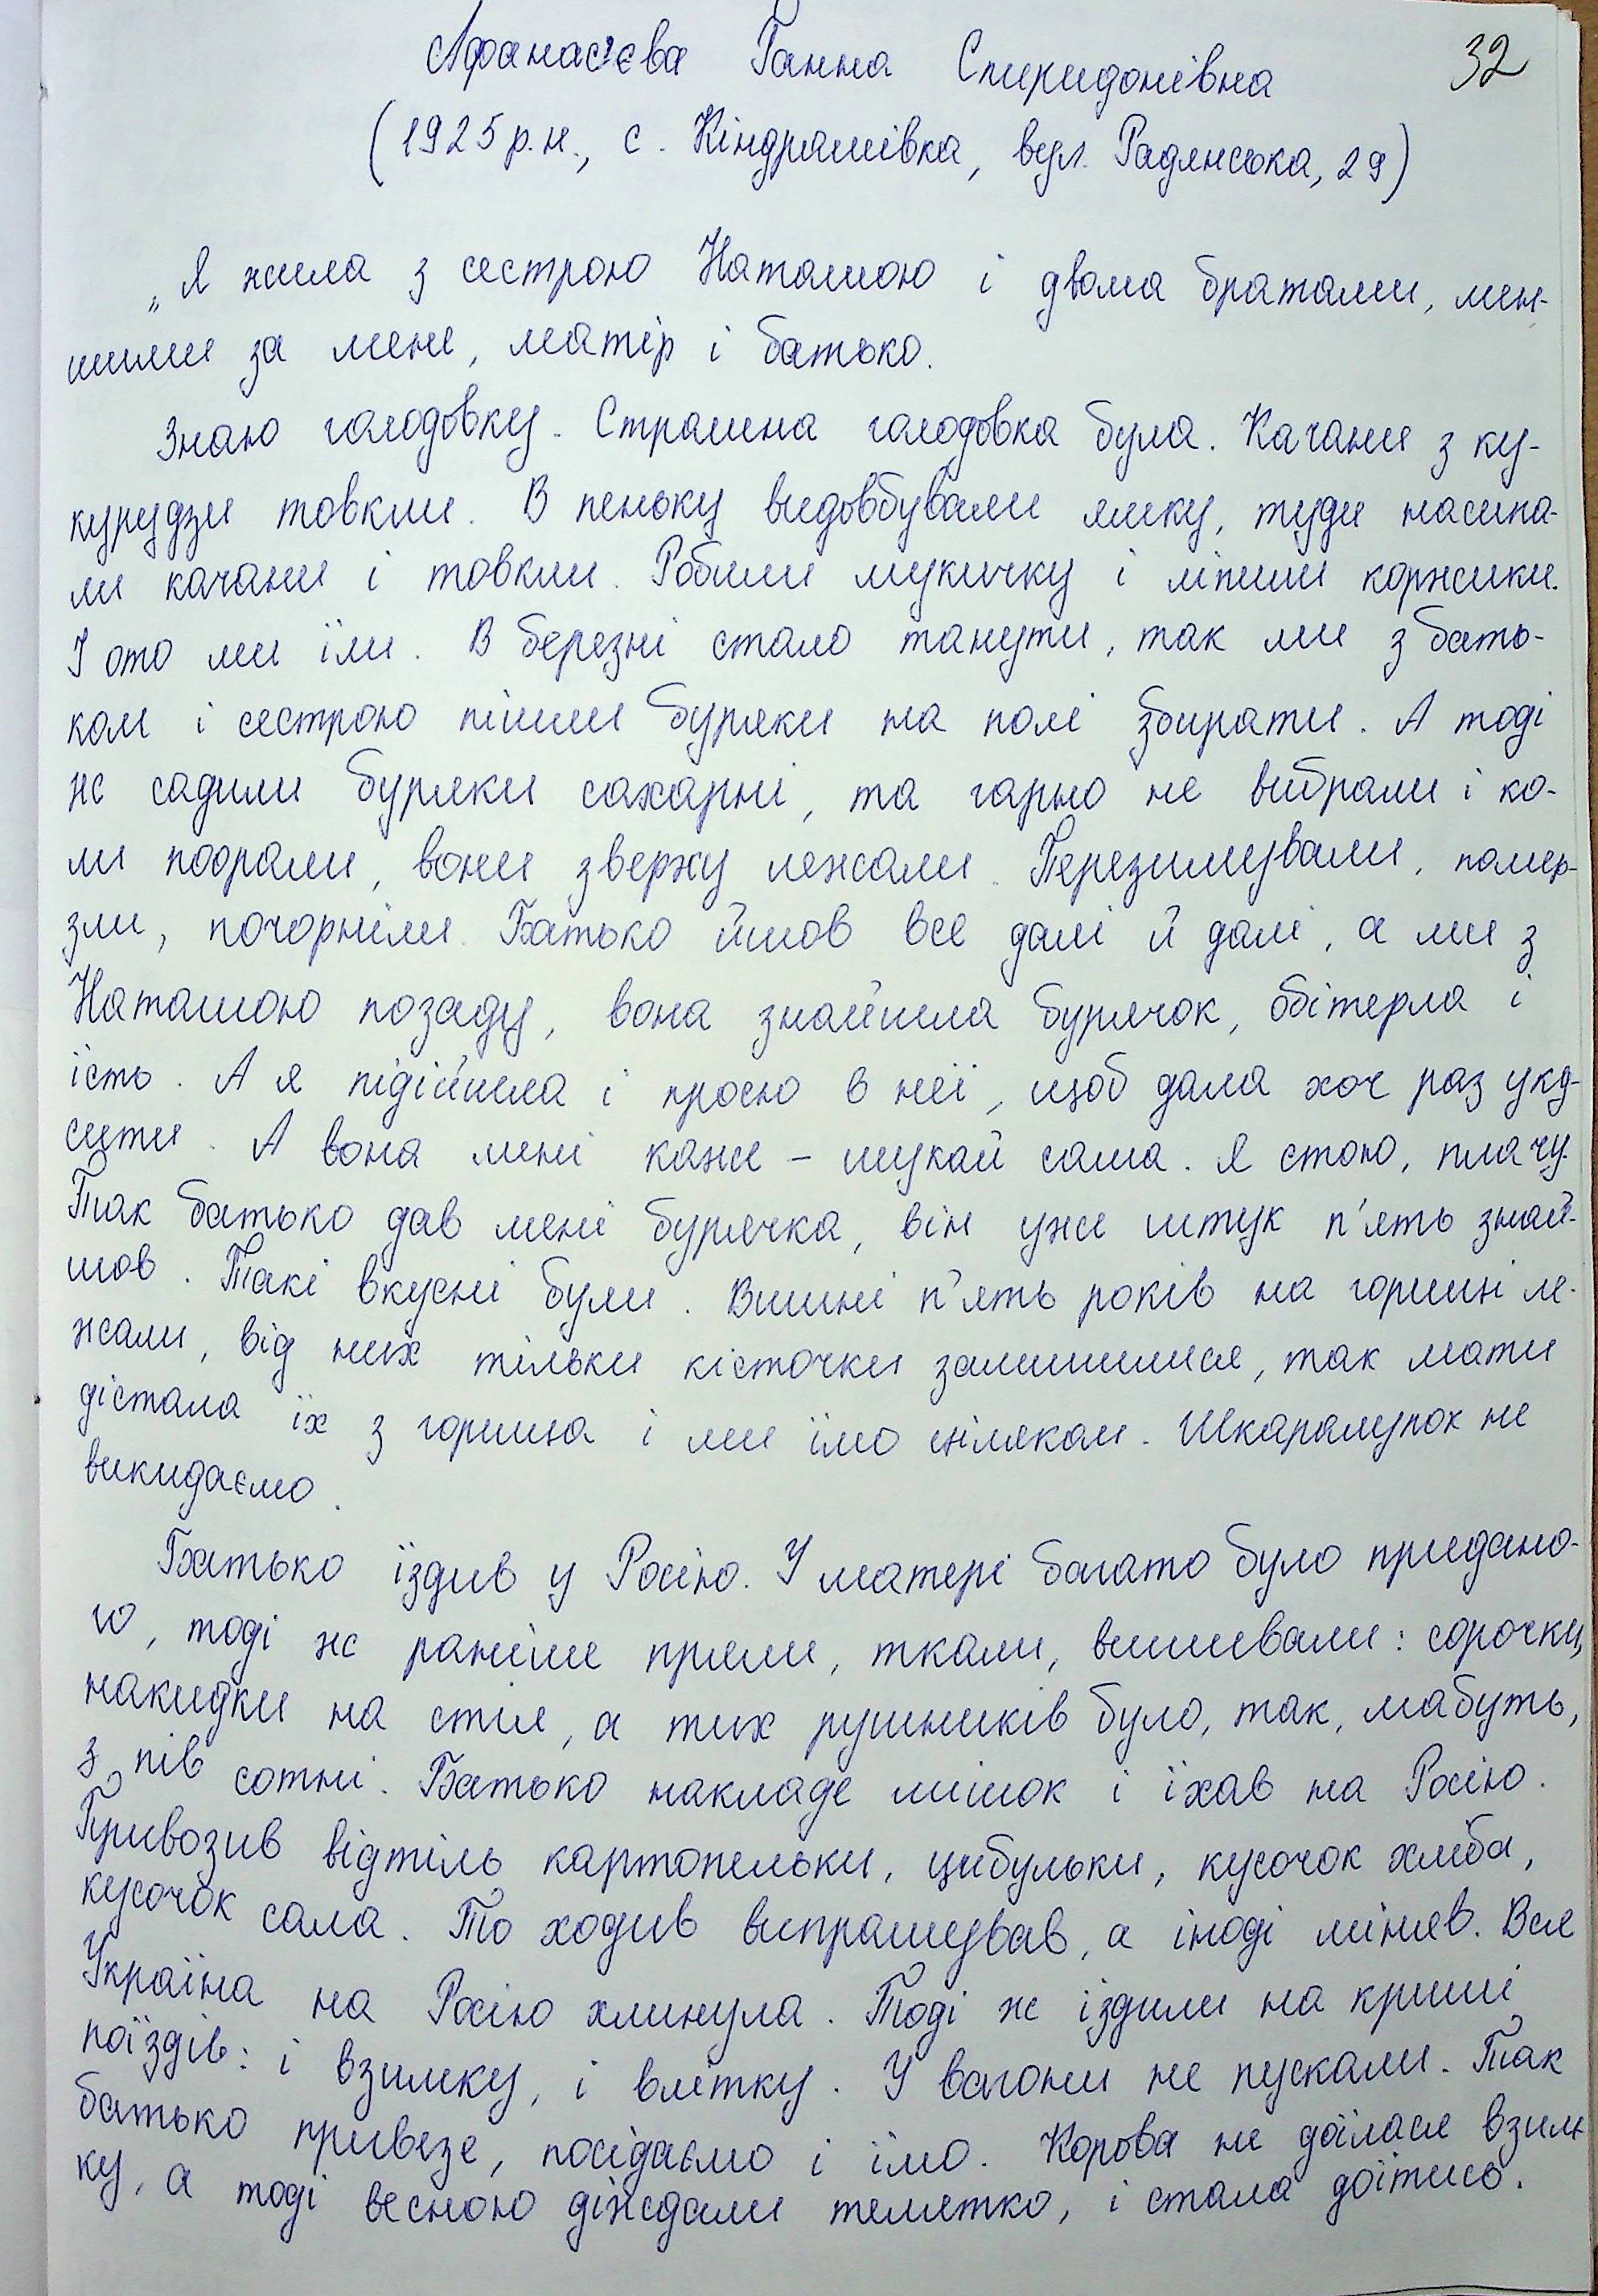 Афанас'єва Ганна Спиридонівна
32
(1925 р.н., с. Кіндрашівка, вул. Радянська, 29)
„Я жила з сестрою Наташою і двома братами, мен-
шими за мене, матір і батько.
Знаю голодовку. Страшна голодовка була. Качани з ку-
курудзи товкли. В пеньку видовбували ямку, туди насипа-
ли качани і товкли. Робили мукичку і ліпили коржики.
І ото ми їли. В березні стало танути, так ми з бать-
ком і сестрою пішли буряки на полі збирати. А тоді
ж садили буряки сахарні, та гарно не вибрали і ко-
ли поорали, вони зверху лежали. Перезимували, помер-
зли, почорніли. Батько йшов все далі й далі, а ми з
Наташою позаду, вона знайшла бурячок, обітерла і
їсть. А я підійшла і прошу в неї, щоб дала хоч раз уку-
сити. А вона мені каже – шукай сама. Я стою, плачу.
Так батько дав мені бурячка, він уже штук п'ять знай-
шов. Такі вкусні були. Вишні п'ять років на горищі ле-
жали, від них тільки кісточки залишилися, так мати
дістала їх з горища і ми їмо ціляком. Шкаралупок не
викидаємо.
Батько їздив у Росію. У матері багато було придано-
го, тоді ж раніше пряли, ткали, вишивали: сорочки,
накидки на стіл, а тих рушників було, так, мабуть,
з пів сотні. Батько накладе мішок і їхав на Росію.
Привозив відтіль картопельки, цибульки, кусочок хліба,
кусочок сала. То ходив випрашував, а іноді міняв. Вся
Україна на Росію хлинула. Тоді ж їздили на криші
поїздів: і взимку, і влітку. У вагони не пускали. Так
батько привезе, посідаємо і їмо. Корова не доїлася взим-
ку, а тоді весною діждали телятко, і стала доїтись.